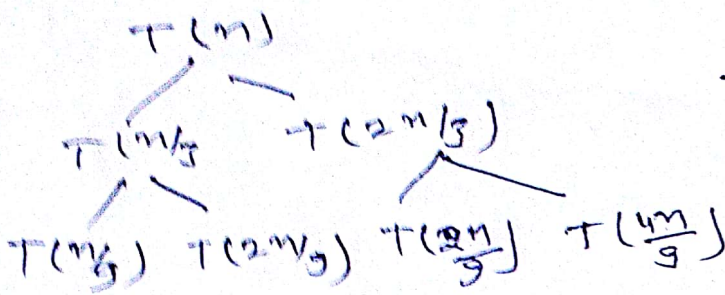 T(n)
T(n/3 T(2n/3)
T(n/9) T(2n/9) T(2n/9) T(4n/9)